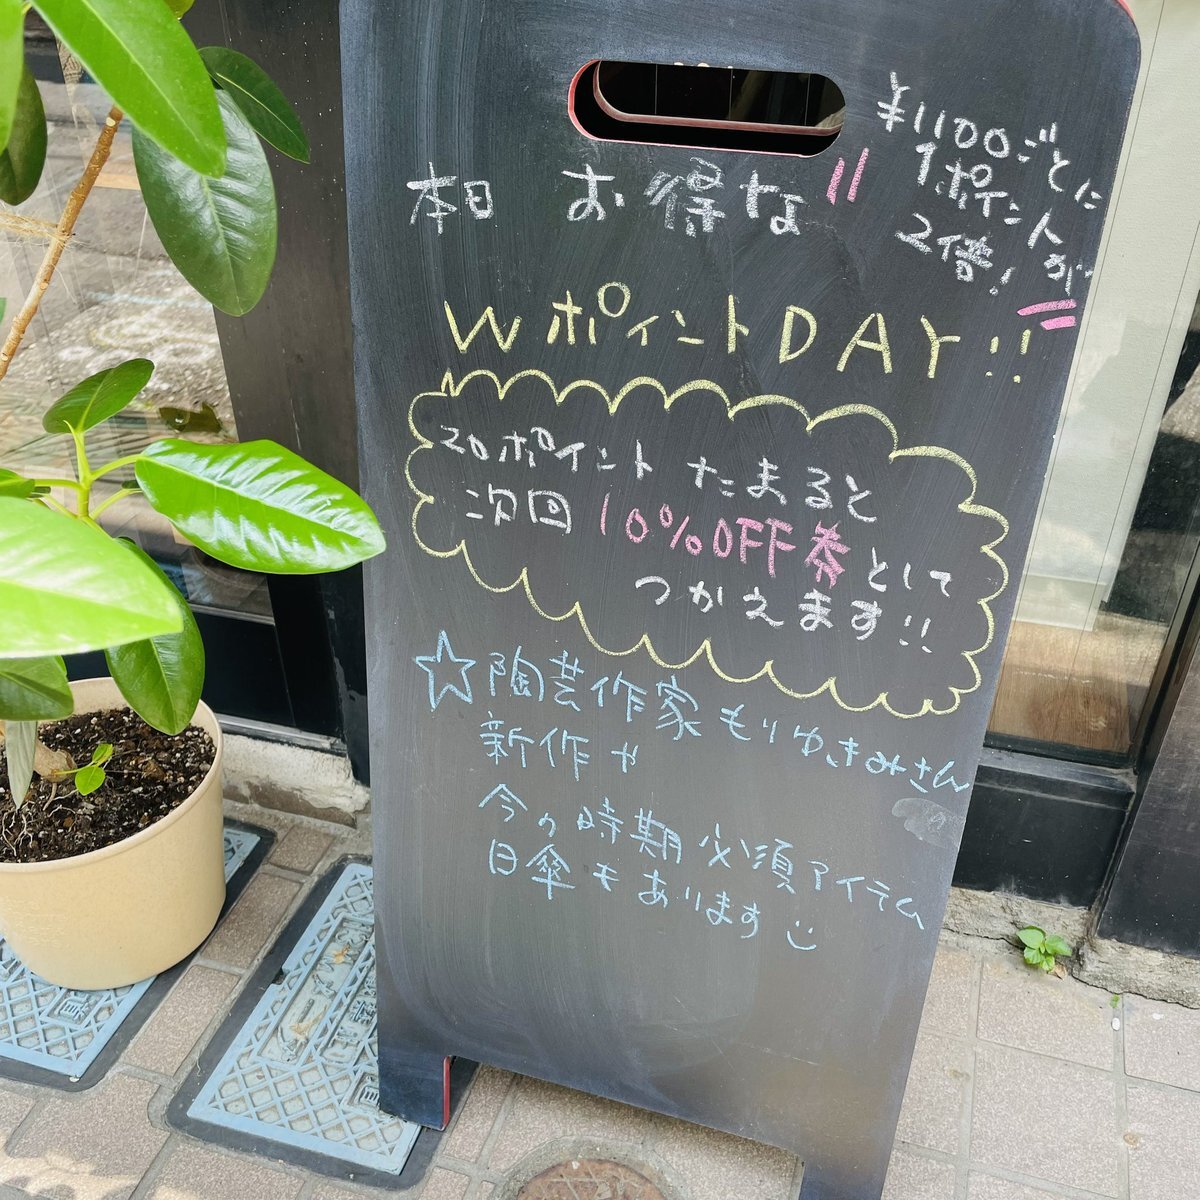 ¥1100ごとに
1ポイントが
2倍!
本日 お得な
WポイントDAY!!
20ポイント たまると
次回 10%OFF券として
つかえます!!
☆陶芸作家 もりゆきみさん
新作や
今の時期 必須アイテム
日傘もあります